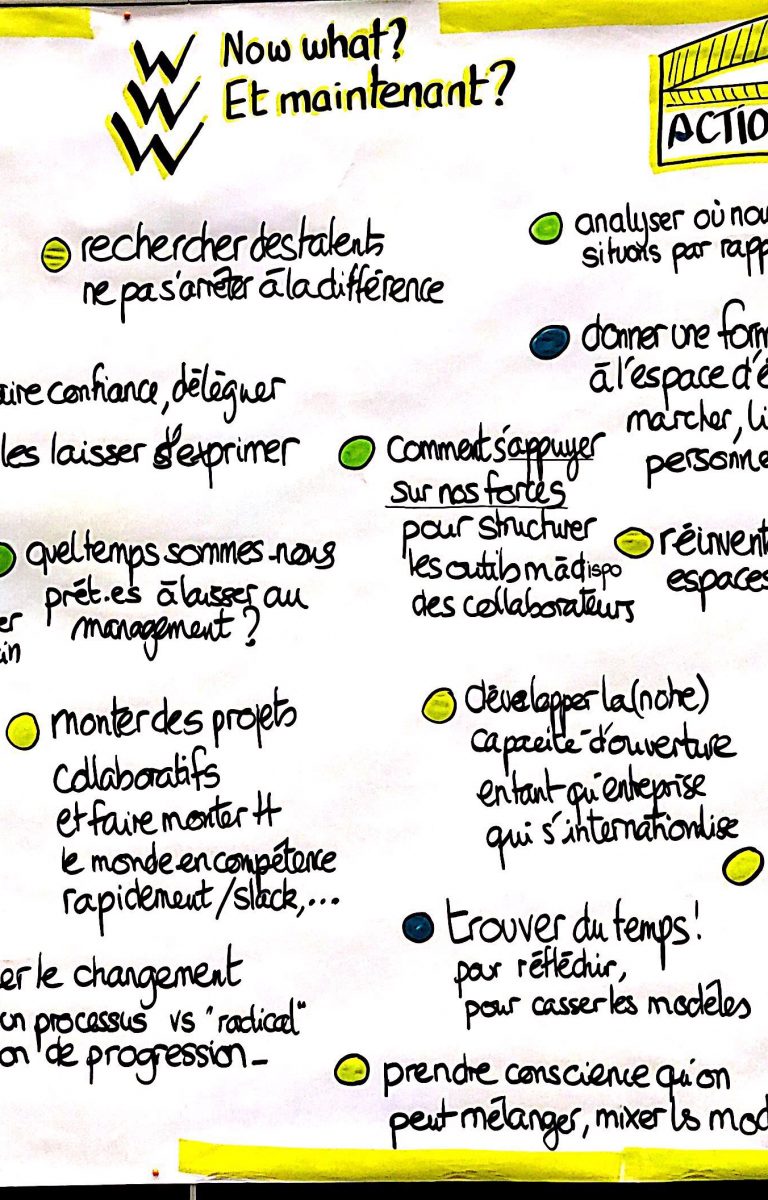 W
W
W
Now what?
Et maintenant?
ACTIO
rechercher des talents
ne pas s'arrêter à la différence
analyser où nou
situons par rapp
donner une form
à l'espace d'é
marcher, li
personne
aire confiance, délèguer
les laisser s'exprimer
Comment s'appuyer
sur nos forces
pour structurer
les outils mà dispo
des collaborateurs
réinvent
espaces
quel temps sommes-nous
prêt.es à laisser au
management ?
er
in
monter des projets
collaboratifs
et faire monter tt
le monde en compétence
rapidement / slack,...
développer la (notre)
capacité d'ouverture
entant qu'entreprise
qui s'internationalise
trouver du temps !
pour réfléchir,
pour casser les modèles
er le changement
un processus vs "radical"
on de progression_
prendre conscience qu'on
peut mélanger, mixer ls mod